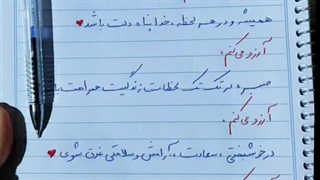 همیشه و در هر لحظه، خدا پناه دلت باشد
آرزو می‌کنم،
در تک تک لحظات زندگیت همراهت
آرزو می‌کنم،
در خوشبختی، سعادت، آرامش و سلامتی غرق شوی